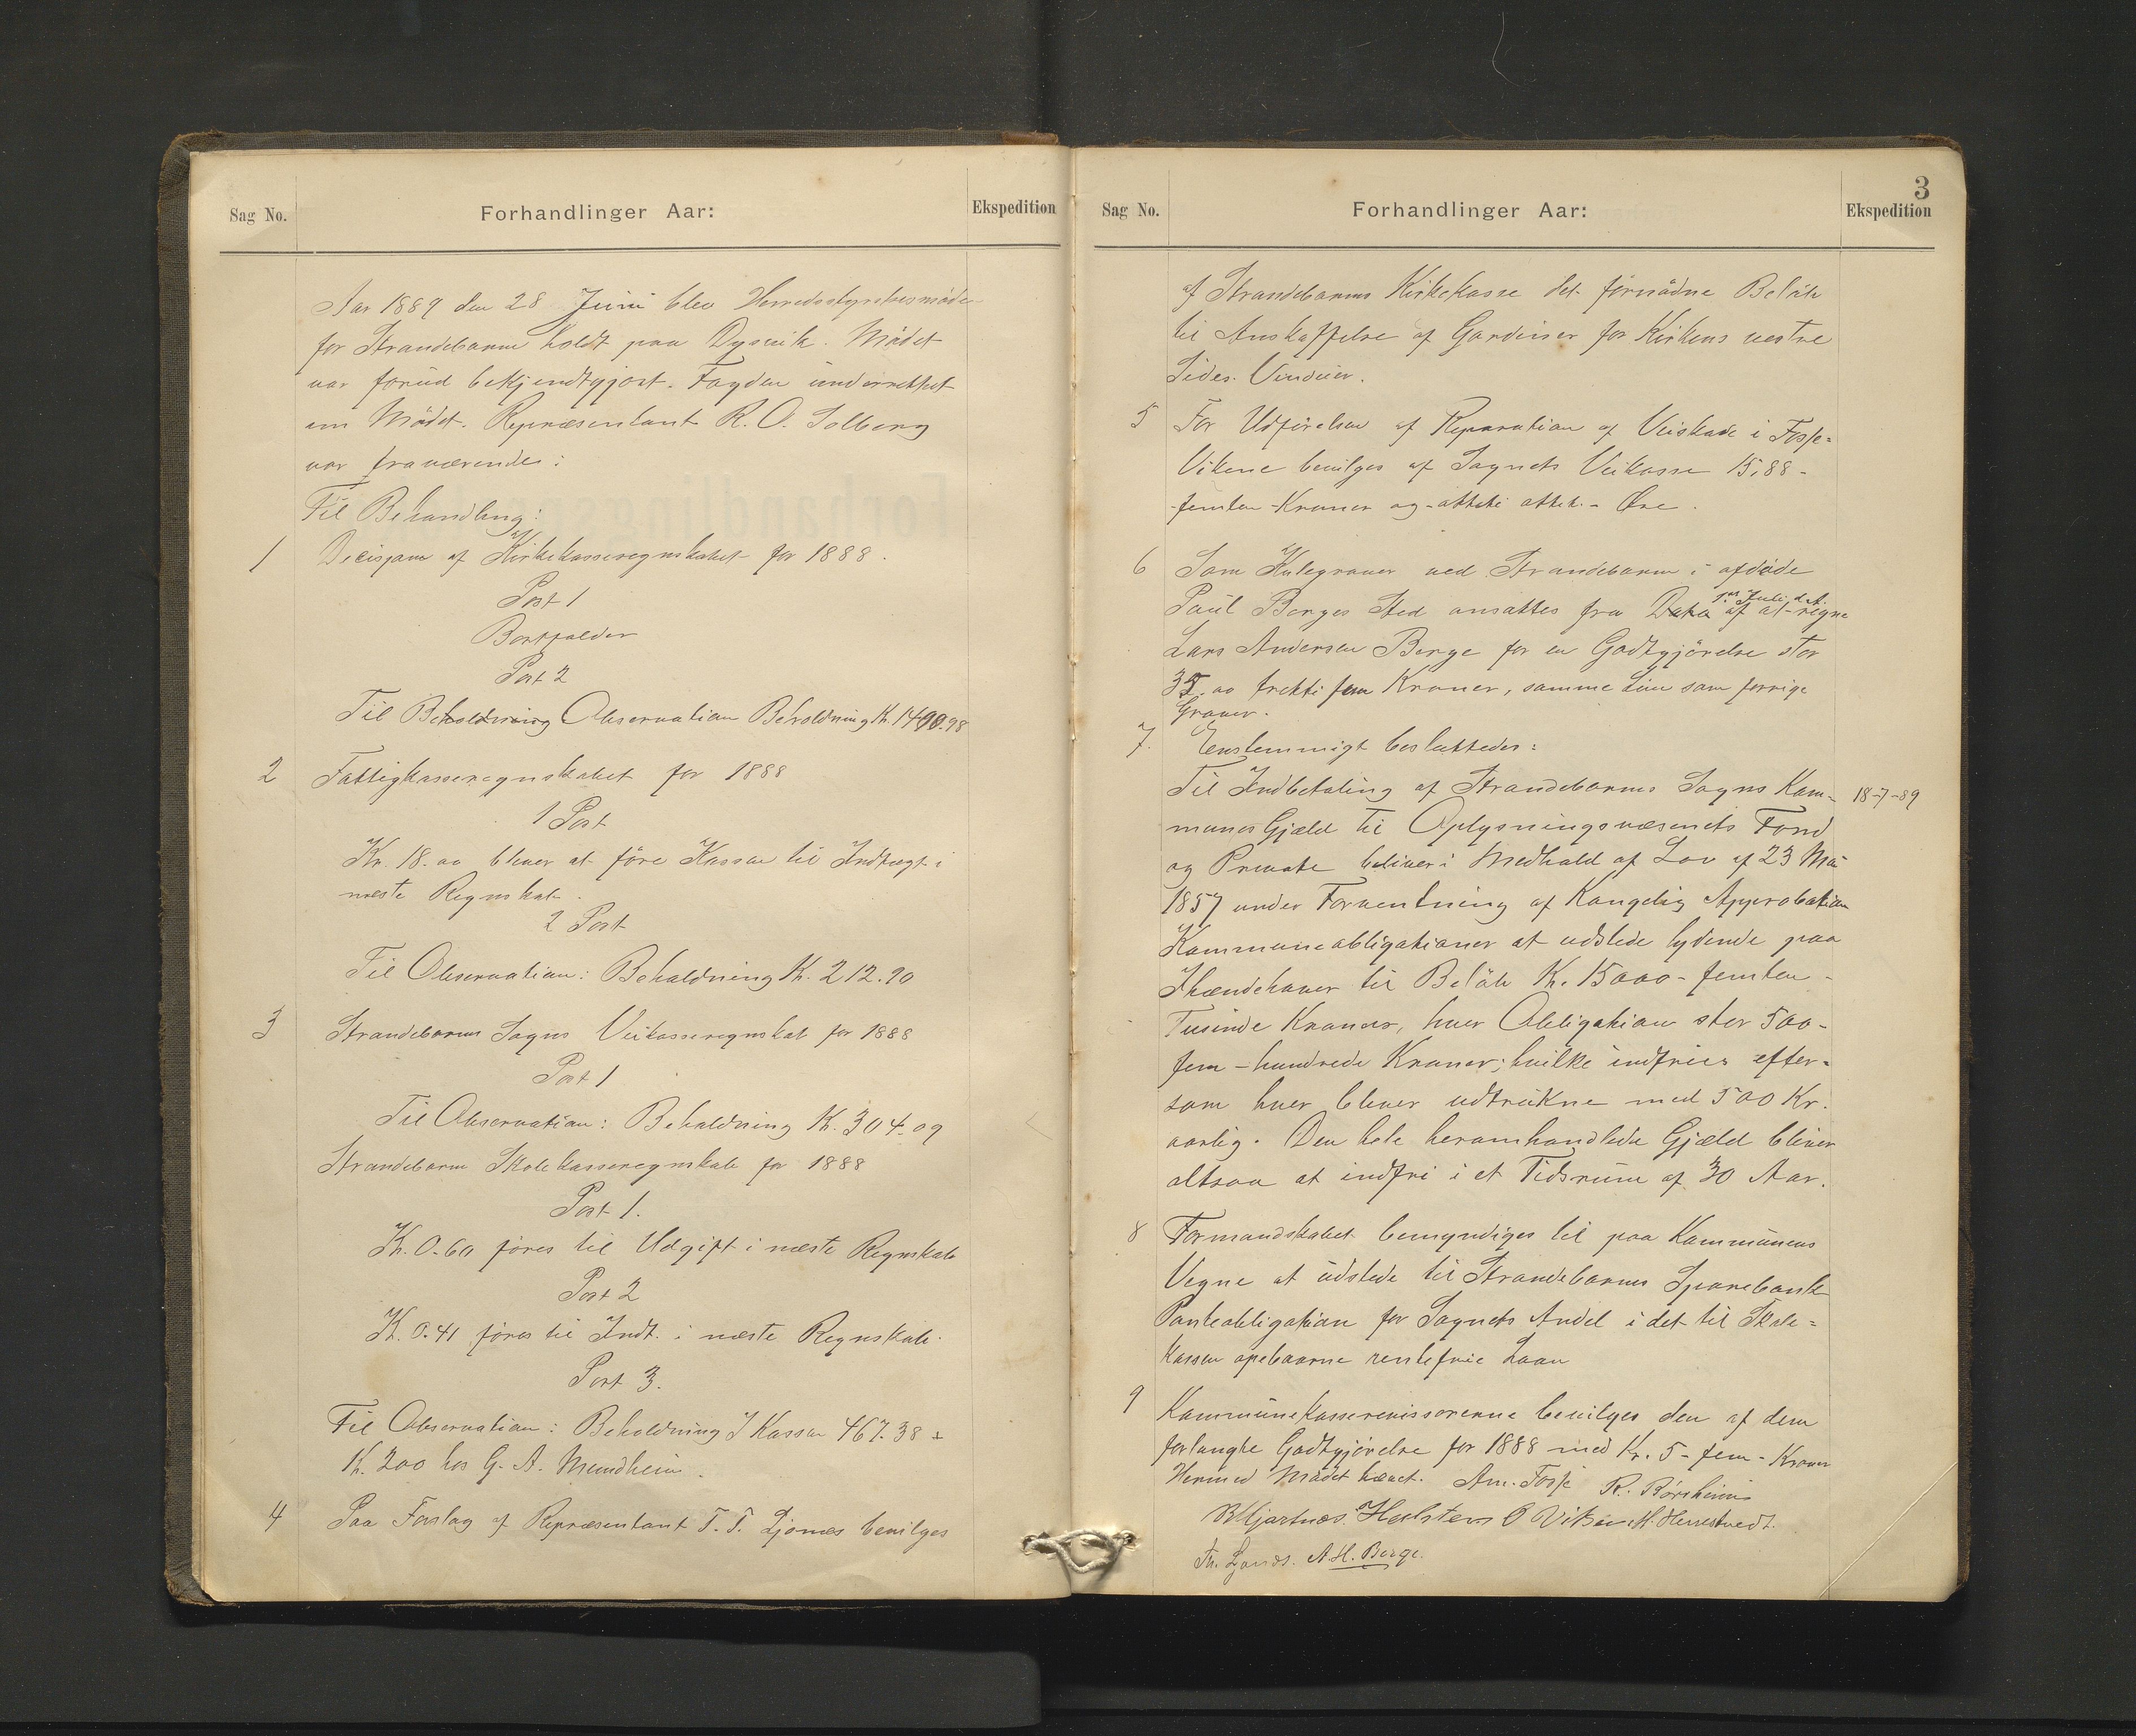 Sag No.
Forhandlinger Aar:
Ekspedition
Aar 1889 den 28 Juni blev Herredsstyrelsesmøde
for Strandebarm holdt paa Dysvik. Mødet
var forud bekjendtgjort. Fogden underrettet
om Mødet. Repræsentant R. O. Solberg
var fraværende:
Til Behandling:
1 Decisjon af Kirkekasseregnskabet for 1888.
Post 1
Bortfalder
Post 2
Til Beholdning Observation Beholdning Kr. 1490.98
2 Fattigkasseregnskabet for 1888
1 Post
Kr. 18.00 bliver at føre Kassen til Indtægt i
næste Regnskab.
2 Post
Til Observation: Beholdning Kr. 212.90
3 Strandebarms Sogns Veikasseregnskab for 1888
Post 1
Til Observation: Beholdning Kr. 304.09
Strandebarm Skolekasseregnskab for 1888
Post 1.
Kr. 0.60 føres til Udgift i næste Regnskab
Post 2
Kr. 0.41 føres til Indt. i næste Regnskab.
Post 3.
Til Observation: Beholdning I Kassen 467.38 +
Kr. 200 hos G. A. Mundheim.
4 Paa Forslag af Repræsentant T. T. Ljones bevilges
3
Sag No.
Forhandlinger Aar:
Ekspedition
af Strandebarms Kirkekasse det fornødne Beløb
til Anskaffelse af Gardiner for Kirkens vestre
Sides Vinduer.
5 For Udførelsen af Reparation af Veiskade i Fosse-
Vikene bevilges af Sognets Veikasse 15,88 -
femten - Kroner og - otteti otte - Øre.
6 Som Kulegraver ved Strandebarm i afdøde
1ste Juli d. A.
Paul Berges Sted ansattes fra Dato af at regne
Lars Andersen Berge for en Godtgjørelse stor
35.00 tretti fem Kroner, samme Løn som forrige
Graver.
7. Enstemmigt besluttedes:
Til Indbetaling af Strandebarms Sogns Kom- 18-7-89
munes Gjæld til Oplysningsvæsenets Fond
og Private bliver i Medhold af Lov af 23 Mai
1857 under Forventning af Kongelig Approbation
Kommuneobligationer at udstede lydende paa
Ihændehaver til Beløb Kr. 15000 - femten -
Tusinde Kroner, hver Obligation stor 500 -
fem - hundrede Kroner; hvilke indfries efter-
som hver bliver udtrukne med 500 Kr.
aarlig. Den hele heromhandlede Gjæld bliver
altsaa at indfri i et Tidsrum af 30 Aar.
8 Formandskabet bemyndiges til paa Kommunens
Vegne at udstede til Strandebarms Sparebank
Panteobligation for Sognets Andel i det til Skole-
kassen opebaarne rentefrie Laan
9 Kommunekasserevisorerne bevilges den af dem
forlangte Godtgjørelse for 1888 med Kr. 5 - fem - Kroner
Hermed Mødet hævet. Am. Fosse R. Børsheim
B Hjartnes Halstens O Viken M. Herrestvedt.
Th. Ljones. A. H. Berge.